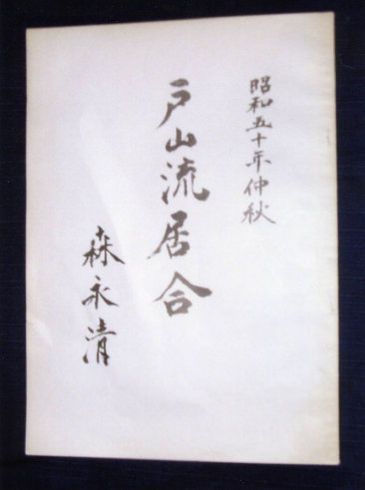 昭和五十年仲秋
戸山流居合
森永清